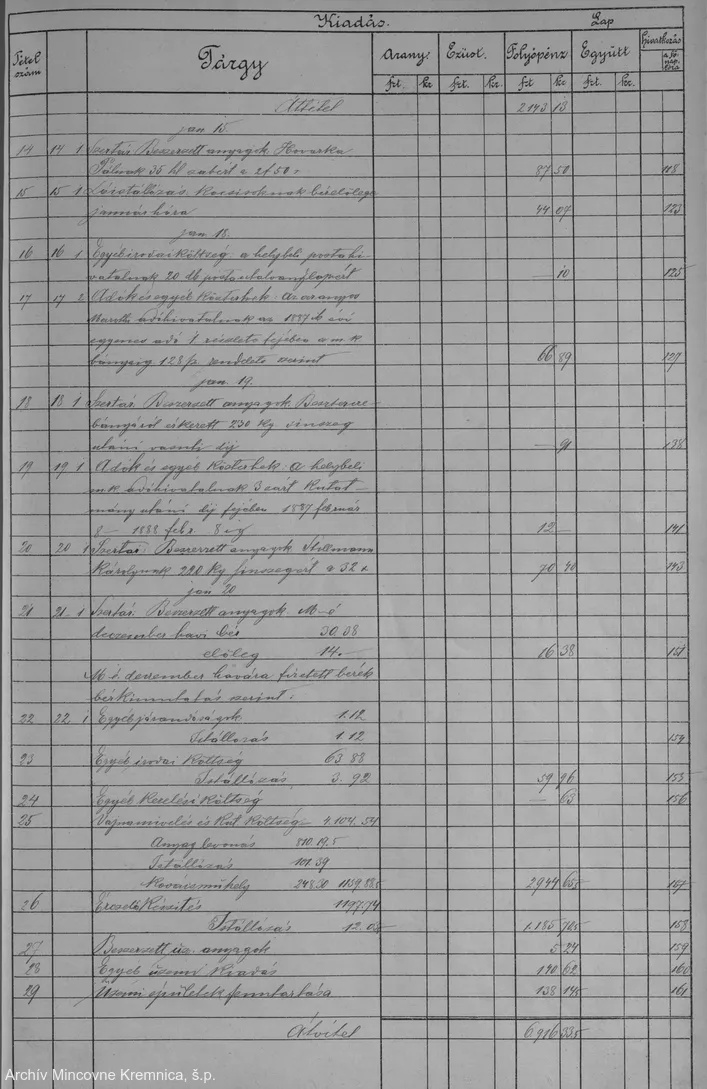 Kiadás. Lap
Tétel szám Tárgy Arany. Ezüst. Folyópénz Együtt Hivatkozás a fő napkóra
frt. kr frt. kr. frt kr frt. kr.
Áttétel 2143 13
jan 15.
14 14 1 Szertár: Beszerzett anyagok
Pálnak 35 hl zabért a 2f 50 87 50 118
15 15 1 Lóistállózás kocsisoknak bérelőlege
január hóra 44 07 123
jan 18.
16 16 1 Egyéb irodai költség: a helybeli postahi-
vatalnak 20 db postautalványlapért — 10 125
17 17 2 Adók és egyéb közterhek: az aranyos
adóhivatalnak az 1887ik évi
egyenes adó 1. részlete fejében a m k
bányaig 128/p. rendelete szerint 66 89 127
jan. 19.
18 18 1 Szertár. Beszerzett anyagok. Besztercze-
bányáról érkezett 230 kg.
utáni vasuti díj — 91 138
19 19 1 Adók és egyéb közterhek: a helybeli
m k adóhivatalnak 3 zárt kutat-
mány utáni díj fejében 1887 február
8 – 1888 febr. 8 ig 12 — 141
20 20 1 Szertár: Beszerzett anyagok
Károlynak 220 kg a 32 70 40 143
jan 20
21 21 1 Szertár: Beszerzett anyagok. M-ó
deczember havi bér 30.38
előleg 14.— 16 38 151
M-ó deczember hóvára fizetett bérek
bérkimutatás szerint.
22 22 1 Egyéb járandóságok 1.12
Istállózás 1.12 154
23 Egyéb irodai költség 63.88
Istállózás 3.92 59 96 155
24 Egyéb kezelési költség — 63 156
25 Vajnamivelés és kut költség 4.104.54
Anyag levonás 810.19.5
Istállózás 101.39
Kovácsműhely 248.30 1159.88.5 2944 65.5 157
26 Érczelőkészítés 1197.74
Istállózás 1.185 70.5 158
27 Beszerzett üz. anyagok 5 24 159
28 Egyéb üzemi kiadás 140 62 160
29 Üzemi épületek fenntartása 138 14.5 161
Átvitel 6916 33.5
Archív Mincovne Kremnica, š.p.